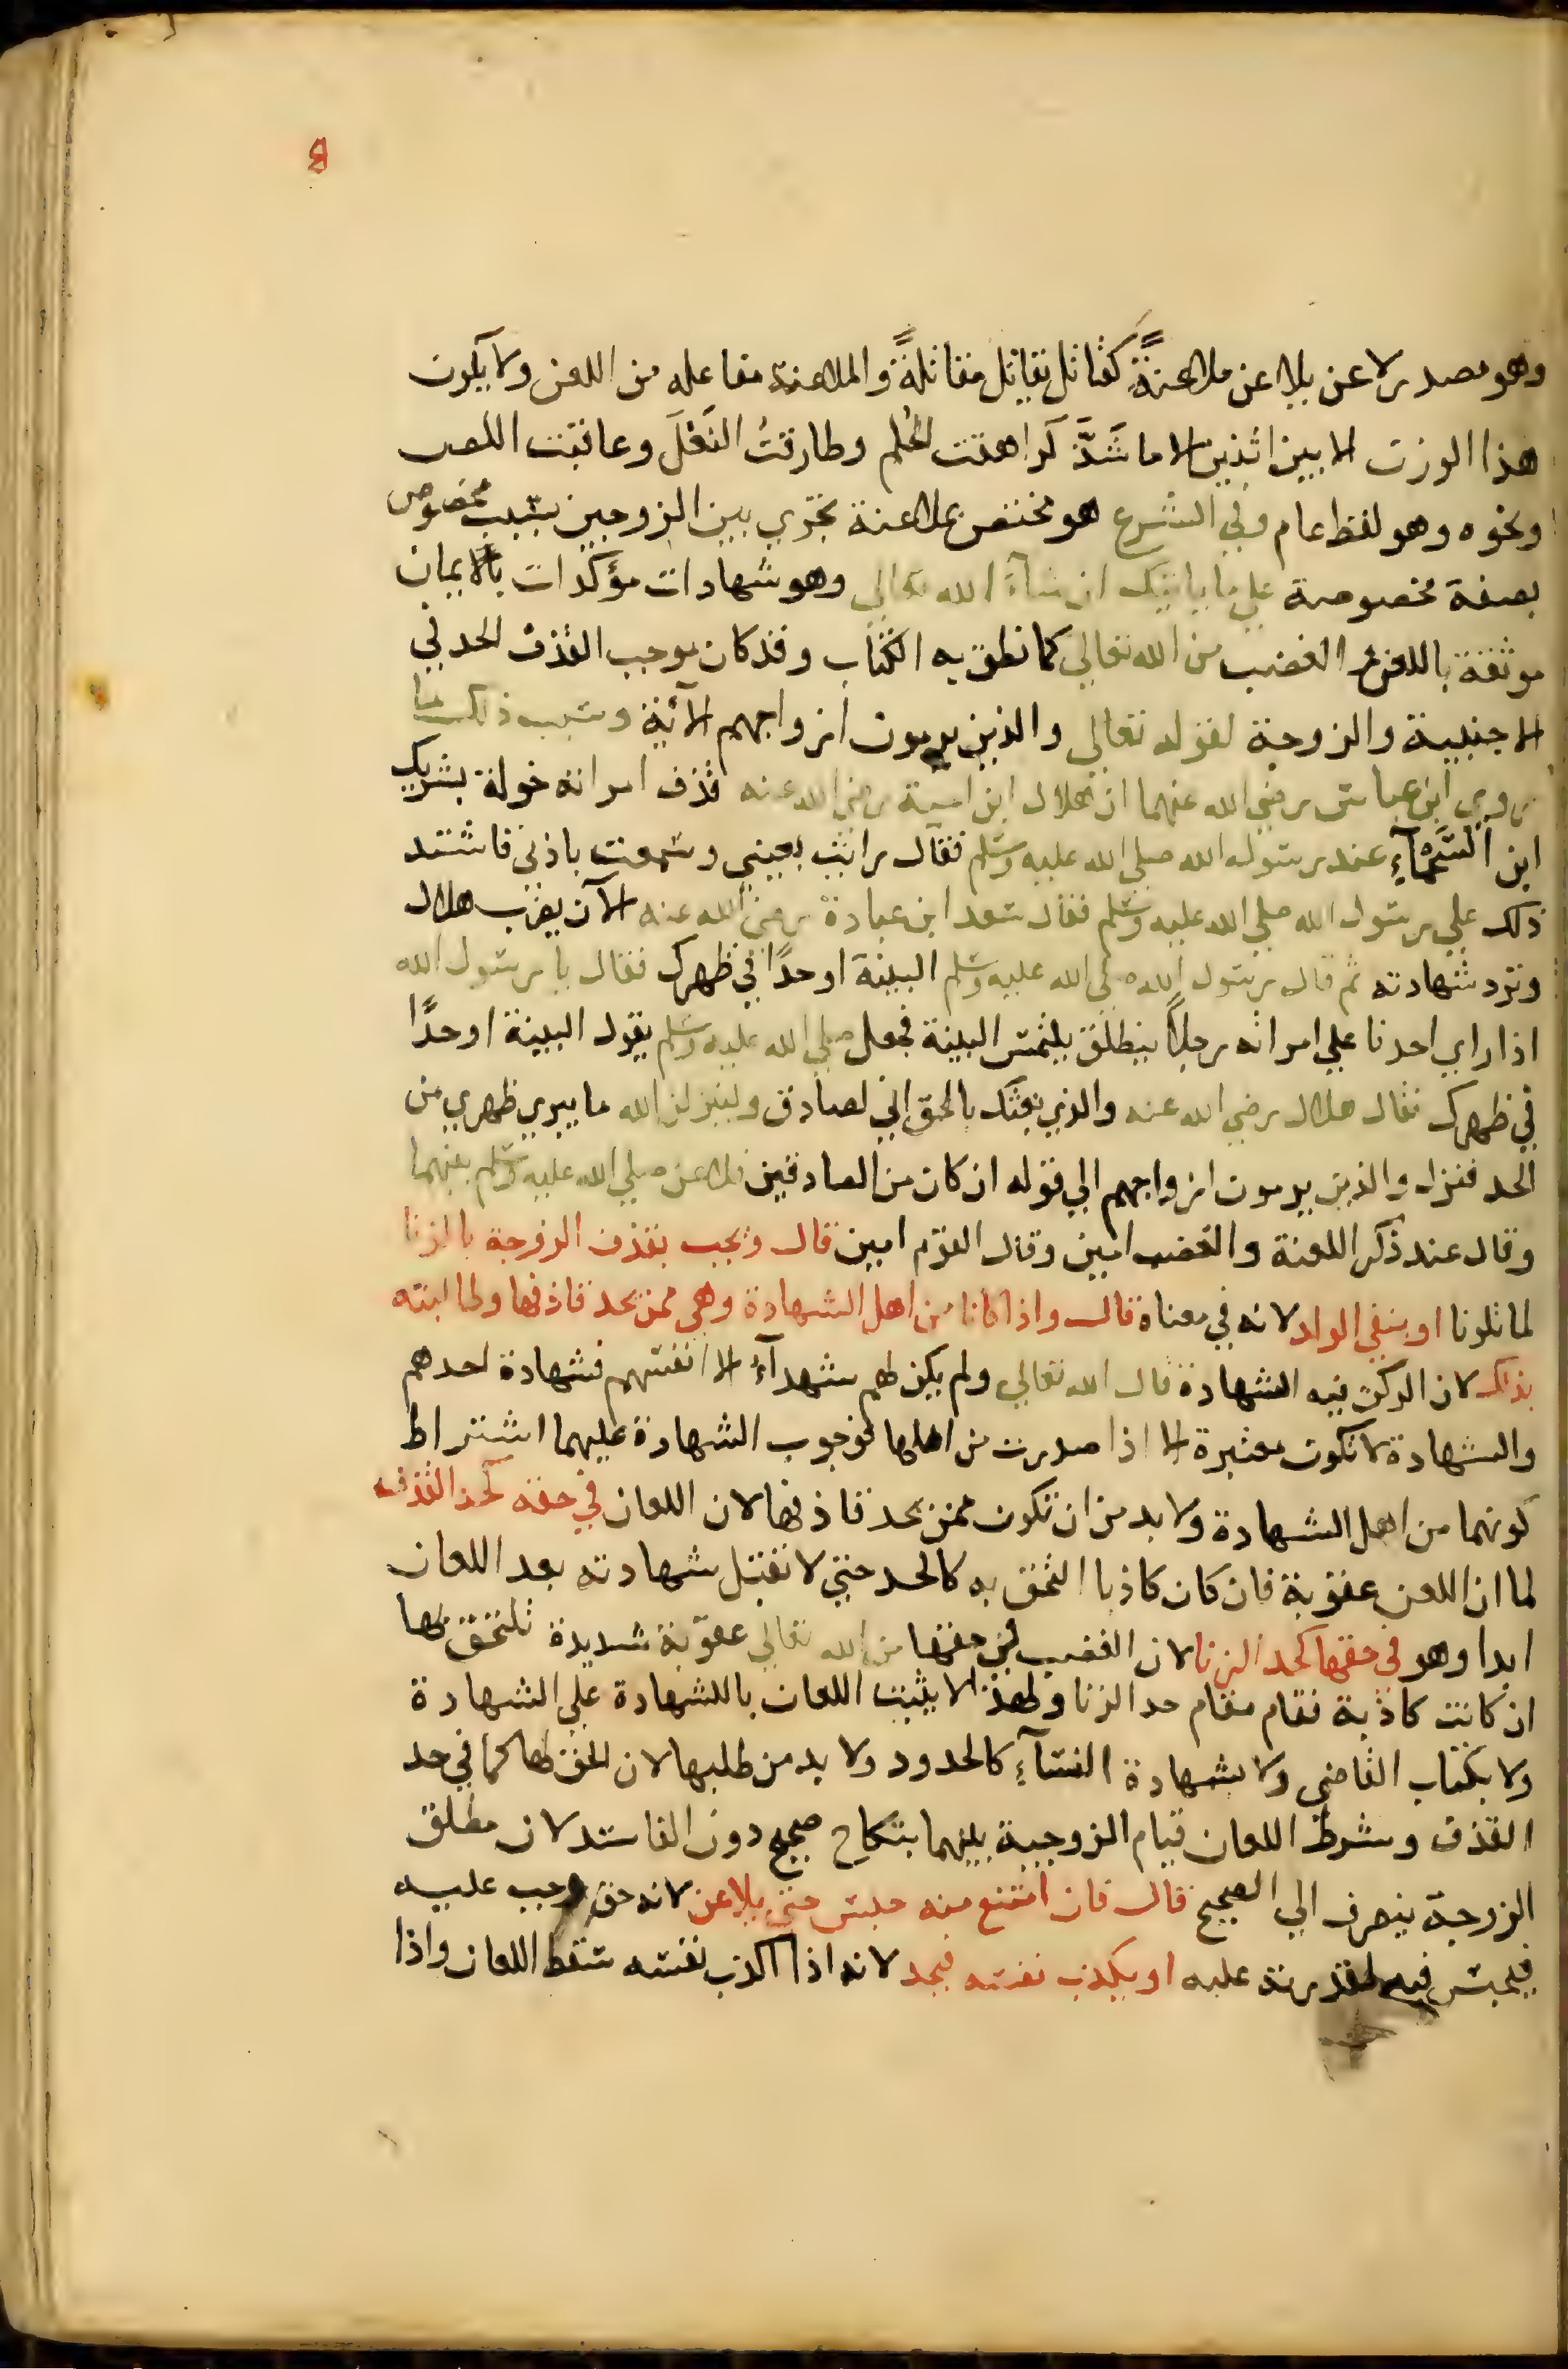 8
وهو مصدر لاعن يلاعن ملاعنةً كقاتل يقاتل مقاتلةً والملاعنة مفاعله من اللعن ولا يكون
هذا الوزن الا بين اثنين الا ما شَذَّ كراهقت الحُلم وطارقتُ النَعْلَ وعاقبت اللص
ونحوه وهو لفظ عام وفي الشرع هو مختص بملاعنة تجري بين الزوجين بسبب مخصوص
بصفة مخصوصة علي ما ياتيك ان شآءَ الله تعالي وهو شهادات مؤكدات بالايمان
موثقة باللعن و الغضب من الله تعالي كما نطق به الكتاب وقد كان موجب القذف الحد في
الاجنبية والزوجة لقوله تعالي والذين يرمون ازواجهم الآية وسبب ذلك ما
روي ابن عباس رضي الله عنهما ان هلال ابن امية رضي الله عنه قذف امراته خولة بشريك
ابن السَّحْمَآءِ عند رسول الله صلي الله عليه وسلم فقال رايت بعيني وسمعت باذني فاشتد
ذلك علي رسول الله صلي الله عليه وسلم فقال سعد ابن عبادة رضي الله عنه الآن يضرب هلال
وترد شهادته ثم قال رسول الله صلي الله عليه وسلم البينة او حدًا في ظهرك فقال يا رسول الله
اذا راي احدنا علي امراته رجلاً ينطلق يلتمس البينة فجعل صلي الله عليه وسلم يقول البينة او حدًا
في ظهرك فقال هلال رضي الله عنه والذي بعثك بالحق اني لصادق ولينزلن الله ما يبري ظهري من
الحد فنزل والذين يرمون ازواجهم الي قوله ان كان من الصادقين فلاعن صلي الله عليه وسلم بينهما
وقال عند ذكر اللعنة والغضب امين وقال القوم امين قال ويجب بقذف الزوجة بالزنا
لما تلونا او بنفي الولد لانه في معناه قال واذا كانا من اهل الشهادة وهي ممن يحد قاذفها وطالبته
بذلك لان الركن فيه الشهادة قال الله تعالي ولم يكن لهم شهدآءُ الا انفسهم فشهادة احدهم
والشهادة لا تكون معتبرة الا اذا صدرت من اهلها فوجوب الشهادة عليهما اشتراط
كونهما من اهل الشهادة ولا بد من ان تكون ممن يحد قاذفها لان اللعان في حقه كحد القذف
لما ان اللعن عقوبة فان كان كاذبا التحق به كالحد حتي لا تقبل شهادته بعد اللعان
ابدا وهو في حقها كحد الزنا لان الغضب في حقها من الله تعالي عقوبة شديدة تلتحق بها
ان كانت كاذبة فقام مقام حد الزنا ولهذا لا يثبت اللعان باللشهادة علي الشهادة
ولا بكتاب القاضي ولا بشهادة النسآءِ كالحدود ولا بد من طلبها لان الحق لها كما في حد
القذف وشرط اللعان قيام الزوجية بينهما بنكاح صحيح دون الفاسد لان مطلق
الزوجة ينصرف الي الصحيح قال فان امتنع منه حبس حتي يلاعن لانه حق وجب عليه
فيحبس فيه لقدرته عليه او يكذب نفسه فيحد لانه اذا اكذب نفسه سقط اللعان واذا